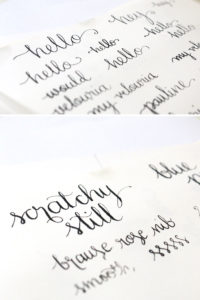 hello hey
hello hello hello
hello hello
would my
velouria my velouria pauline
scratchy blue
still
brause rose nib
smooth, sssss